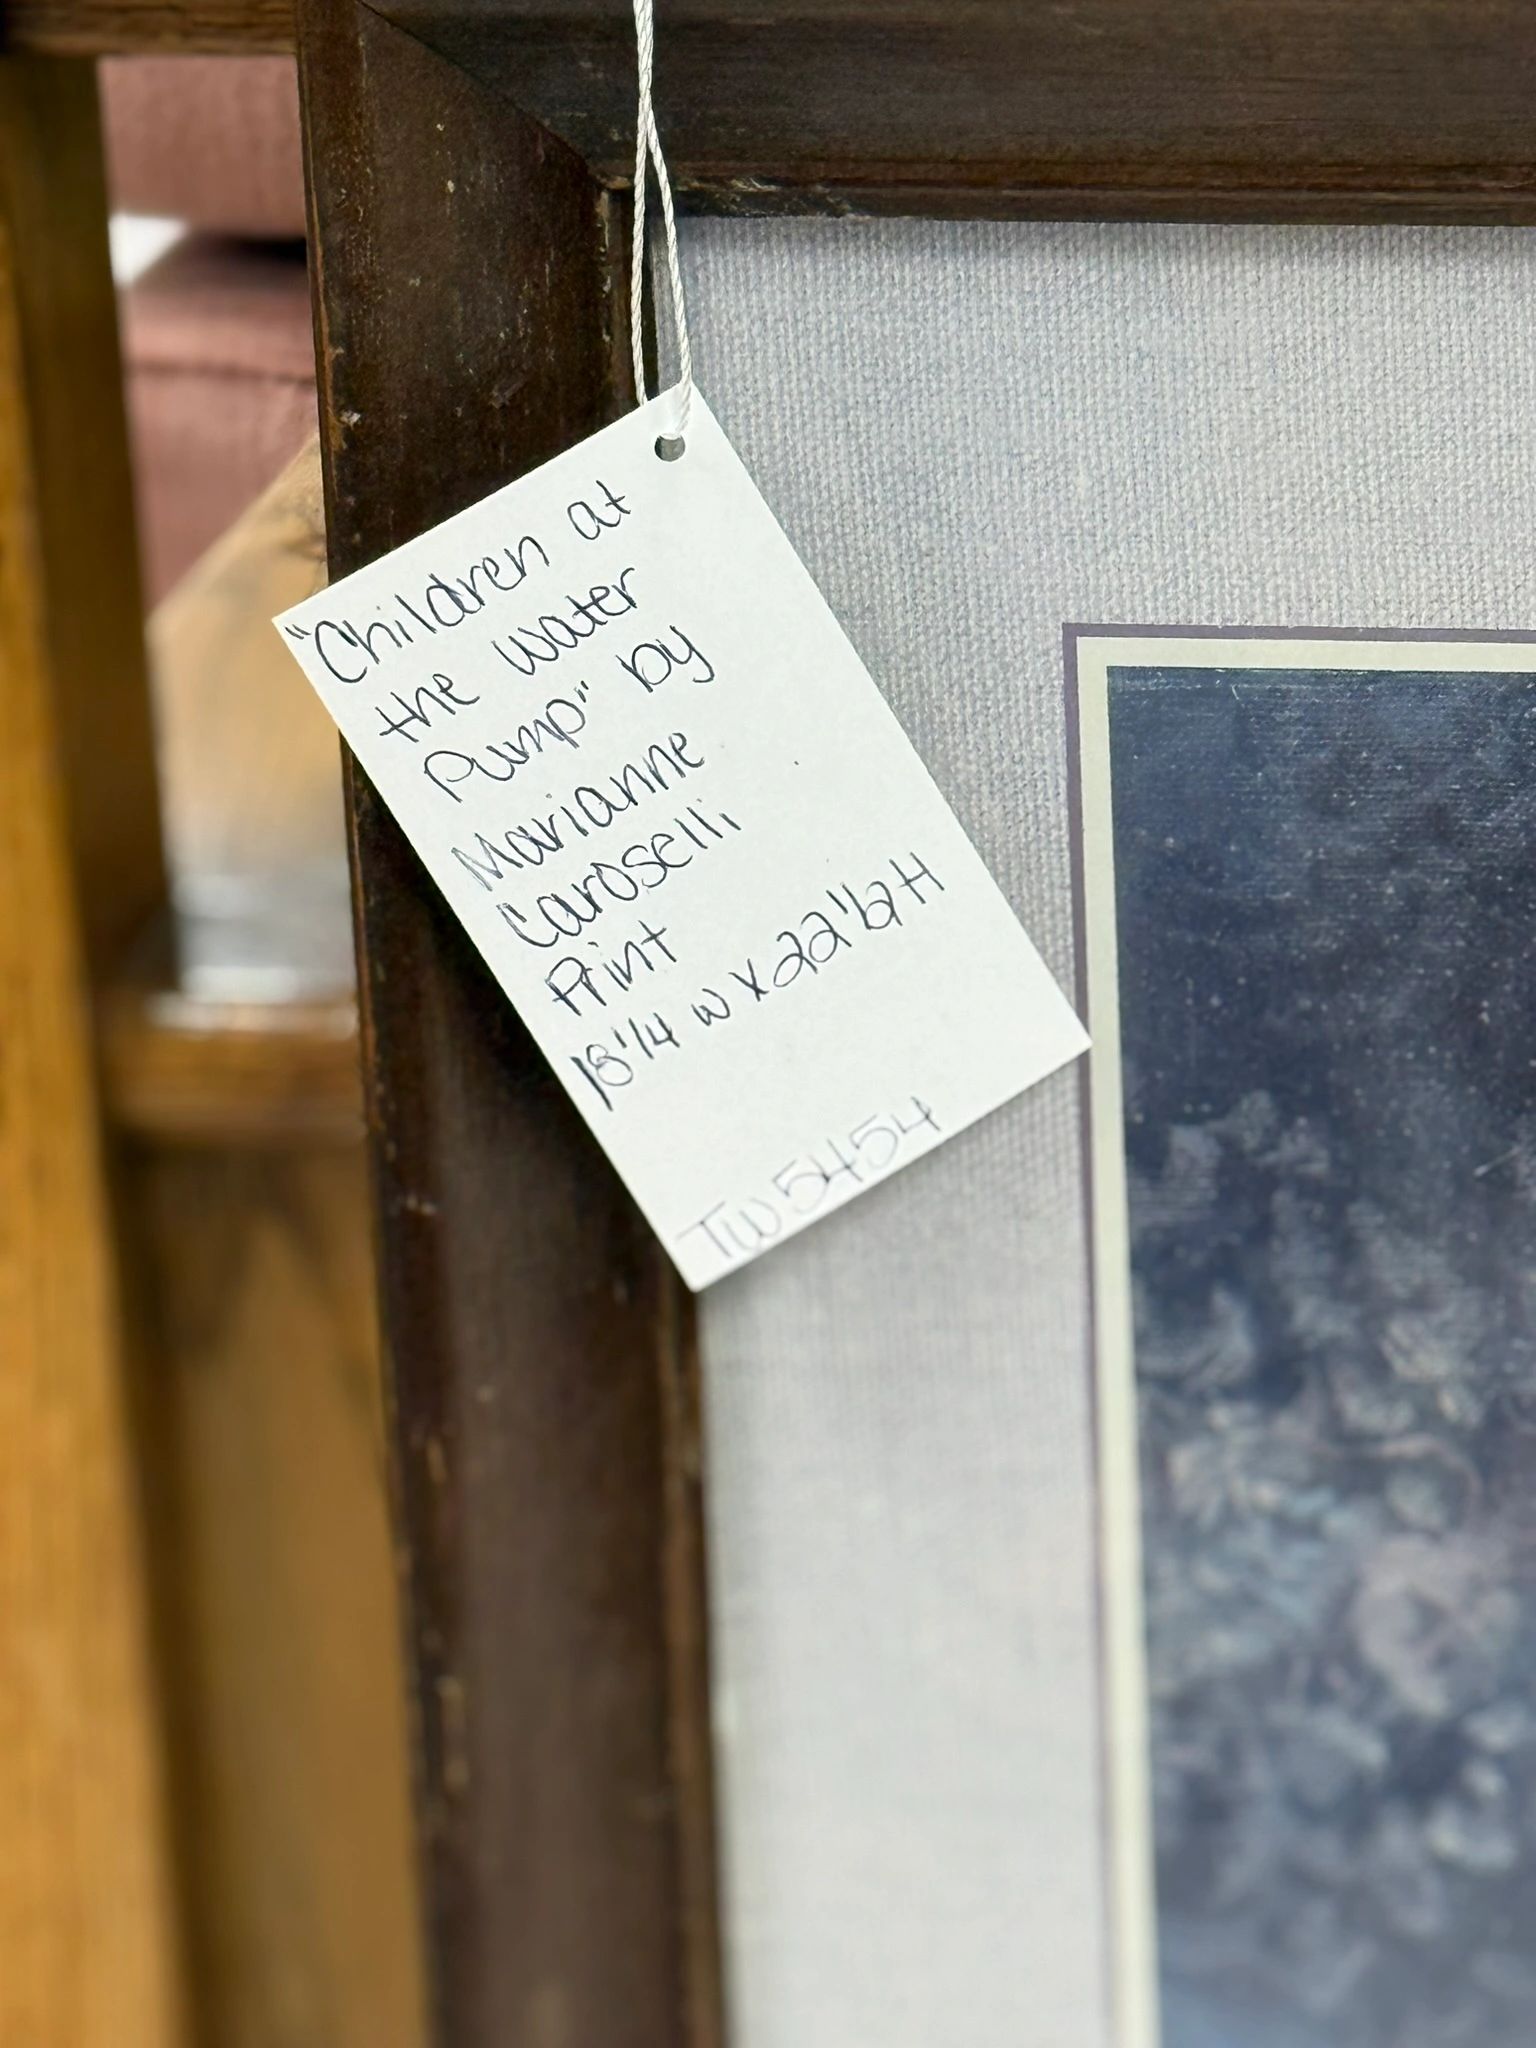 "Children at
the water
Pump" by
Marianne
Caroselli
Print
18 1/4 W X 22 1/2 H
TW5454